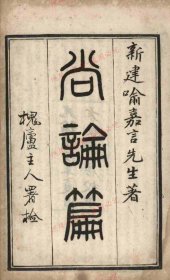 新建喻嘉言先生著
尚論篇
槐廬主人署檢